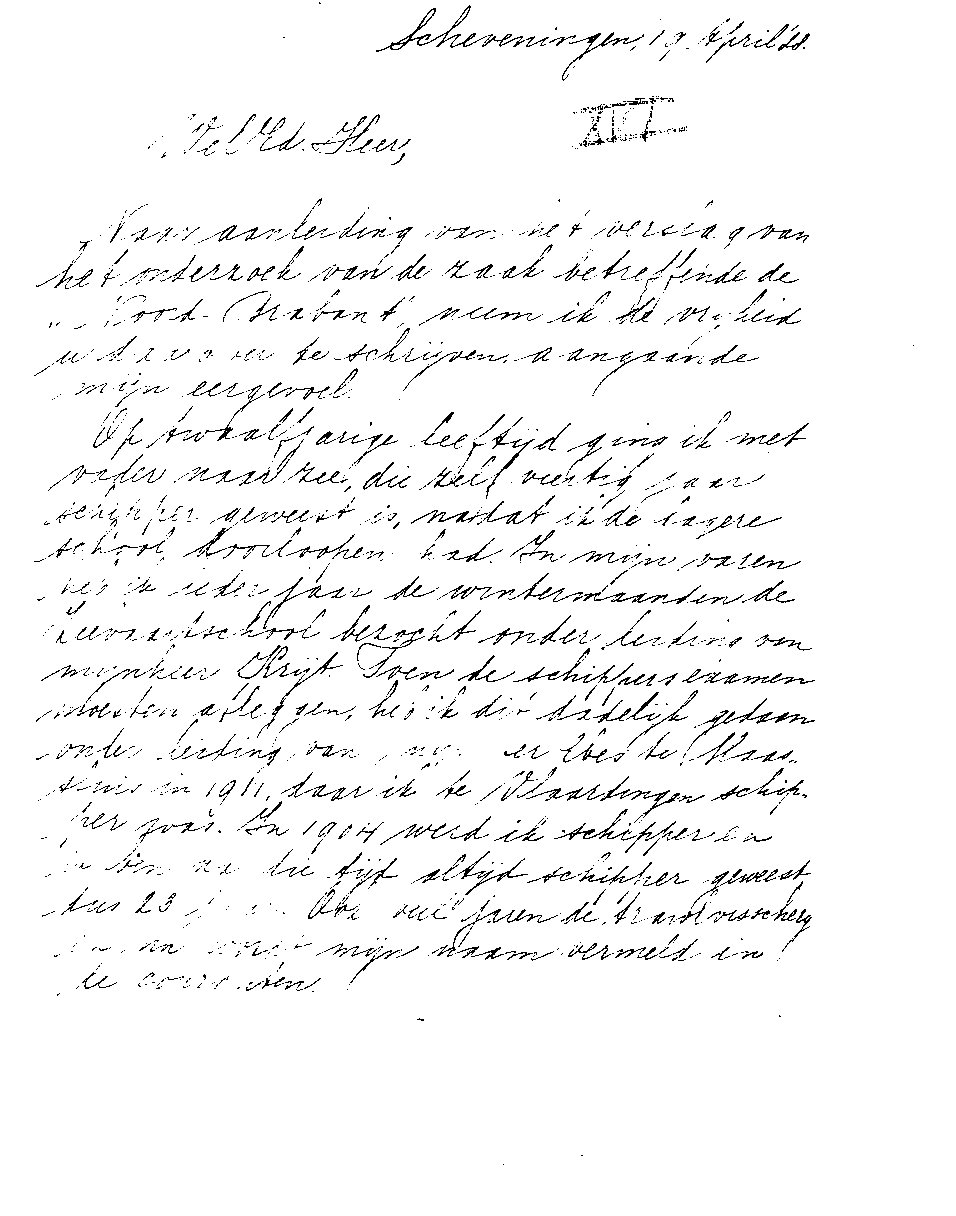 Scheveningen, 19 April '28.
XIII
WelEd. Heer,
Naar aanleiding van het verslag van
het onderzoek van de zaak betreffende de
"Noord-Brabant", neem ik de vrijheid
u daarover te schrijven, aangaande
mijn eergevoel.
Op twaalfjarige leeftijd ging ik met
vader naar zee, die zelf veertig jaar
schipper geweest is, nadat ik de lagere
school doorloopen had. In mijn varen
heb ik ieder jaar de wintermaanden de
Zeevaartschool bezocht onder leiding van
mijnheer Krijt. Toen de schippers examen
moesten afleggen, heb ik dit dadelijk gedaan
onder leiding van er te Maas-
sluis in 1911, daar ik te Vlaardingen schip-
per was. In 1904 werd ik schipper en
ik ben na die tijd altijd schipper geweest,
dus 23 jaar. Ook veel jaren de trawlvisscherij
en nu wordt mijn naam vermeld in
de couranten.